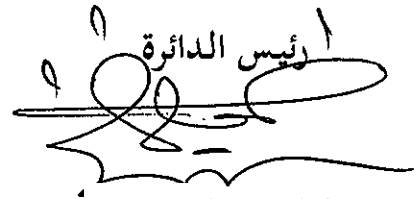 رئيس الدائرة